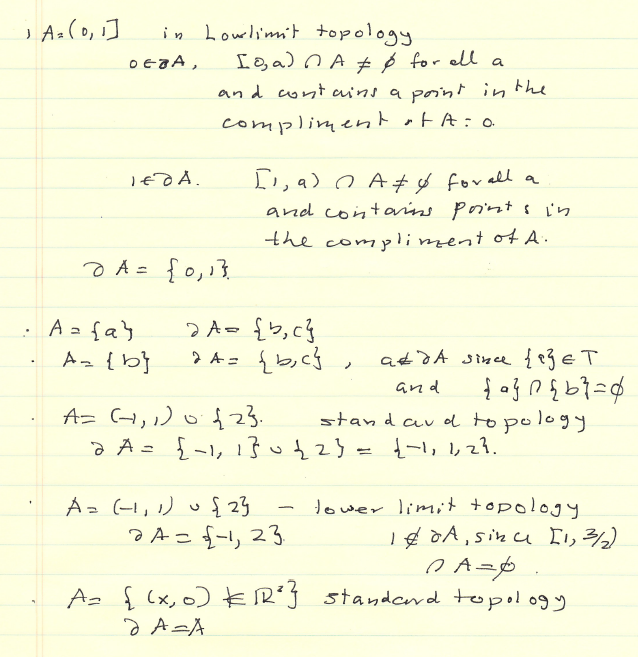 ) A=(0,1] in Lowlimit topology
0∈∂A, [0,a) ∩ A ≠ ∅ for all a
and contains a point in the
compliment of A: 0.
1∈∂A. [1,a) ∩ A ≠ ∅ for all a
and contains points in
the compliment of A.
∂A = {0,1}.
. A={a} ∂A= {b,c}
. A={b} ∂A= {b,c}, a∉∂A since {a}∈T
and {a}∩{b}=∅
. A= (-1,1) ∪ {2}. standard topology
∂A = {-1, 1} ∪ {2} = {-1, 1, 2}.
. A= (-1,1) ∪ {2} – lower limit topology
∂A = {-1, 2}. 1∉∂A, since [1, 3/2)
∩ A=∅.
. A= {(x,0) ∈ ℝ²} standard topology
∂A=A